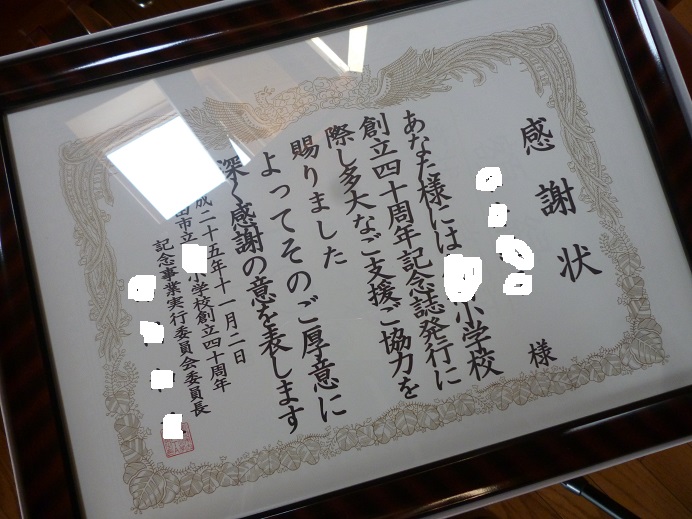 感謝状
様
あなた様には 小学校
創立四十周年記念誌発行に
際し多大なご支援ご協力を
賜りました
よってそのご厚意に
深く感謝の意を表します
成二十五年十一月二日
田市立 小学校創立四十周年
記念事業実行委員会委員長